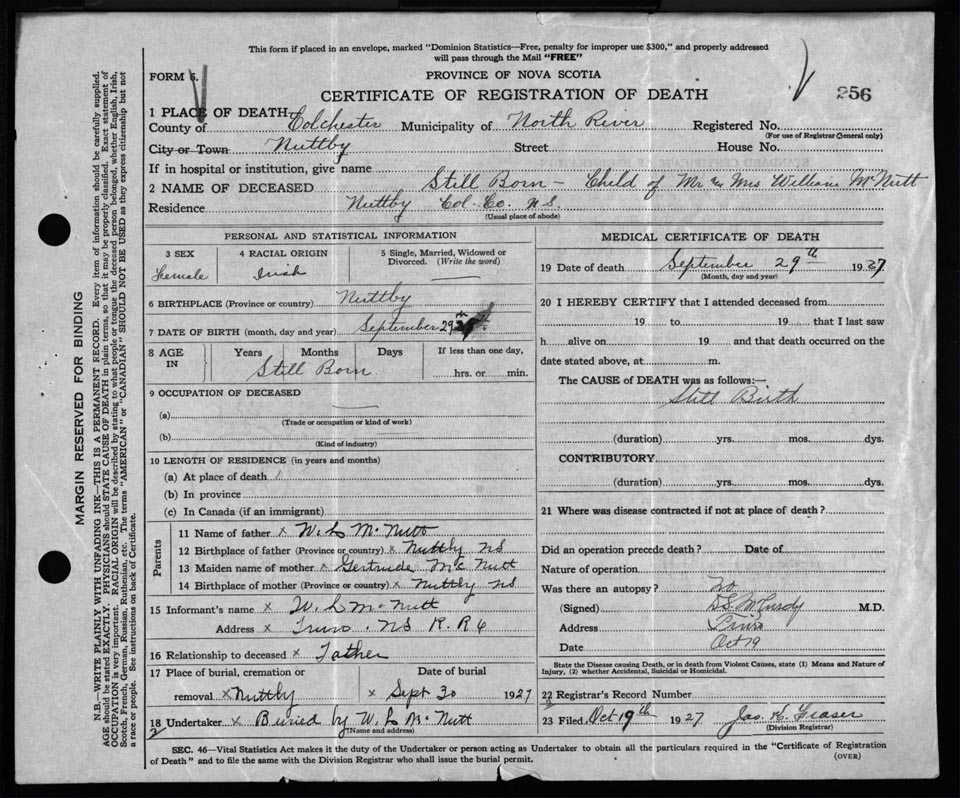 This form if placed in an envelope, marked "Dominion Statistics—Free, penalty for improper use $300," and properly addressed
will pass through the Mail "FREE"
FORM 6.
PROVINCE OF NOVA SCOTIA
CERTIFICATE OF REGISTRATION OF DEATH
256
1 PLACE OF DEATH—
County of Colchester Municipality of North River Registered No.
(For use of Registrar General only)
City or Town Nuttby Street House No.
If in hospital or institution, give name
2 NAME OF DECEASED Still Born – Child of Mr & Mrs William McNutt
Residence Nuttby Col. Co. N.S.
(Usual place of abode)
PERSONAL AND STATISTICAL INFORMATION
3 SEX 4 RACIAL ORIGIN 5 Single, Married, Widowed or
Divorced. (Write the word)
Female Irish
6 BIRTHPLACE (Province or country) Nuttby
7 DATE OF BIRTH (month, day and year) September 29
8 AGE IN Years Months Days If less than one day,
Still Born hrs. or min.
9 OCCUPATION OF DECEASED
(a)
(Trade or occupation or kind of work)
(b)
(Kind of industry)
10 LENGTH OF RESIDENCE (in years and months)
(a) At place of death
(b) In province
(c) In Canada (if an immigrant)
Parents
11 Name of father x W. L McNutt
12 Birthplace of father (Province or country) x Nuttby NS
13 Maiden name of mother x Gertrude McNutt
14 Birthplace of mother (Province or country) x Nuttby NS
15 Informant's name x W. L McNutt
Address x Truro . NS R.R 6
16 Relationship to deceased x Father
17 Place of burial, cremation or Date of burial
removal x Nuttby x Sept 30 1927
18 Undertaker x Buried by W. L McNutt
2
(Name and address)
MEDICAL CERTIFICATE OF DEATH
19 Date of death September 29th 1927
(Month, day and year)
20 I HEREBY CERTIFY that I attended deceased from
19 to 19 that I last saw
h alive on 19 and that death occurred on the
date stated above, at m.
The CAUSE of DEATH was as follows:—
Still Birth
(duration) yrs. mos. dys.
CONTRIBUTORY
(duration) yrs. mos. dys.
21 Where was disease contracted if not at place of death?
Did an operation precede death? Date of
Nature of operation
Was there an autopsy? No
(Signed) McCurdy M.D.
Address Truro
Date Oct 19
State the Disease causing Death, or in death from Violent Causes, state (1) Means and Nature of
Injury, (2) whether Accidental, Suicidal or Homicidal.
22 Registrar's Record Number
23 Filed Oct 19th 1927 Jas. K. Fraser
(Division Registrar)
SEC. 46—Vital Statistics Act makes it the duty of the Undertaker or person acting as Undertaker to obtain all the particulars required in the "Certificate of Registration
of Death" and to file the same with the Division Registrar who shall issue the burial permit.
(OVER)
MARGIN RESERVED FOR BINDING
N.B.—WRITE PLAINLY WITH UNFADING INK—THIS IS A PERMANENT RECORD. Every item of information should be carefully supplied.
AGE should be stated EXACTLY. PHYSICIANS should STATE CAUSE OF DEATH in plain terms, so that it may be properly classified. Exact statement of
OCCUPATION is very important. RACIAL ORIGIN will be described by stating to what people or tongue the deceased person belonged, whether English, Irish,
Scotch, French, German, Russian, Ruthenian, etc. The terms "AMERICAN" or "CANADIAN" SHOULD NOT BE USED as they express citizenship but not
a race or people. See instructions on back of Certificate.